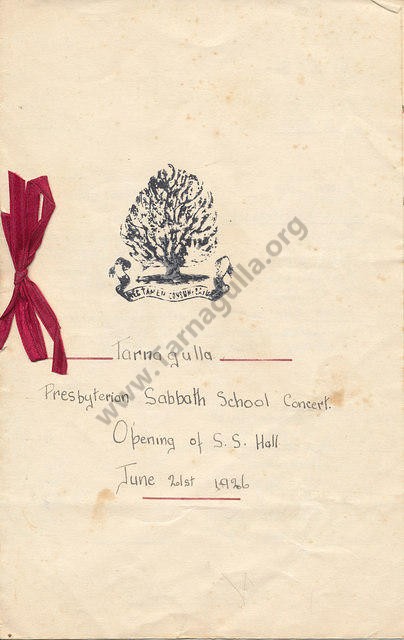 NEC TAMEN CONSUMEBATUR
Tarnagulla
Presbyterian Sabbath School Concert.
Opening of S. S. Hall
June 21st 1926
www.Tarnagulla.org